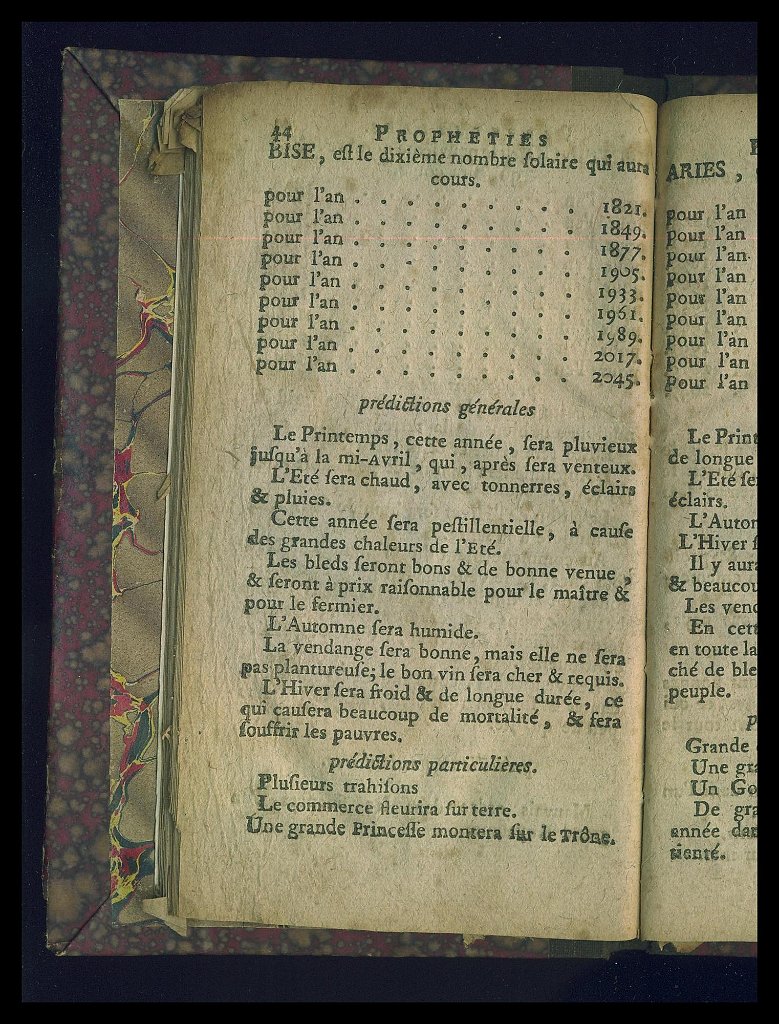 44 PROPHÉTIES
BISE, eſt le dixième nombre ſolaire qui aura
cours.
pour l'an . . . . . . . . . . 1821.
pour l'an . . . . . . . . . . 1849.
pour l'an . . . . . . . . . . 1877.
pour l'an . . . . . . . . . . 1905.
pour l'an . . . . . . . . . . 1933.
pour l'an . . . . . . . . . . 1961.
pour l'an . . . . . . . . . . 1989.
pour l'an . . . . . . . . . . 2017.
pour l'an . . . . . . . . . . 2045.
prédictions générales
Le Printemps, cette année, ſera pluvieux
juſqu'à la mi-Avril, qui, après ſera venteux.
L'Eté ſera chaud, avec tonnerres, éclairs
& pluies.
Cette année ſera peſtillentielle, à cauſe
des grandes chaleurs de l'Eté.
Les bleds ſeront bons & de bonne venue,
& ſeront à prix raiſonnable pour le maître &
pour le fermier.
L'Automne ſera humide.
La vendange ſera bonne, mais elle ne ſera
pas plantureuſe; le bon vin ſera cher & requis.
L'Hiver ſera froid & de longue durée, ce
qui cauſera beaucoup de mortalité, & ſera
ſouffrir les pauvres.
prédictions particulières.
Pluſieurs trahiſons
Le commerce fleurira ſur terre.
Une grande Princeſſe montera ſur le Trône.
ARIES,
pour l'an
pour l'an
pour l'an
pour l'an
pour l'an
pour l'an
pour l'an
pour l'an
pour l'an
Le Print
de longue
L'Eté ſe
éclairs.
L'Auton
L'Hiver ſ
Il y aura
& beaucou
Les vend
En cett
en toute la
ché de ble
peuple.
p
Grande
Une gra
Un Go
De gra
année dan
rienté.